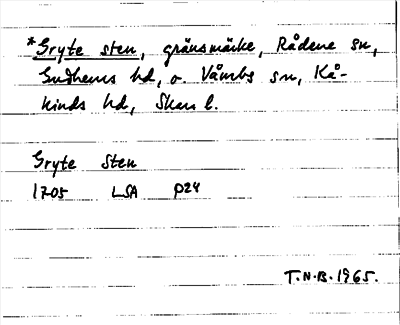 *Gryte sten, gränsmärke, Rådene sn,
Gudhems hd, o. Våmbs sn, Kå-
kinds hd, Skar l.
Gryte Sten
1705 LSA P24
T.N.B. 1965.